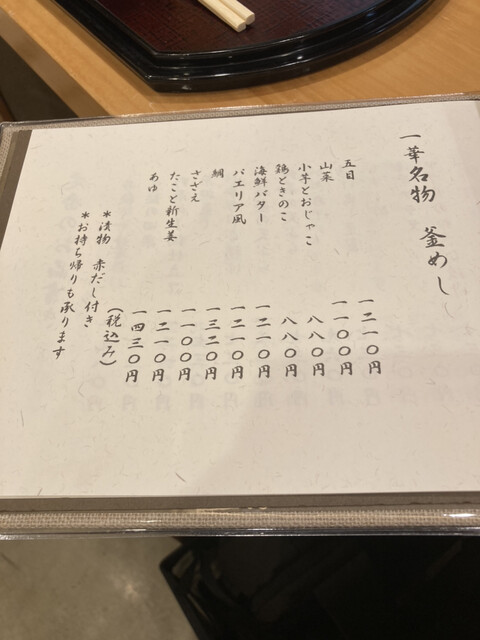 一華名物 釜めし
五目 一二一〇円
山菜 一一〇〇円
小芋とおじゃこ 八八〇円
鶏ときのこ 八八〇円
海鮮バター 一二一〇円
パエリア風 一二一〇円
鯛 一三二〇円
さざえ 一一〇〇円
たこと新生姜 一二一〇円
あゆ 一四三〇円
(税込み)
＊漬物 赤だし付き
＊お持ち帰りも承ります